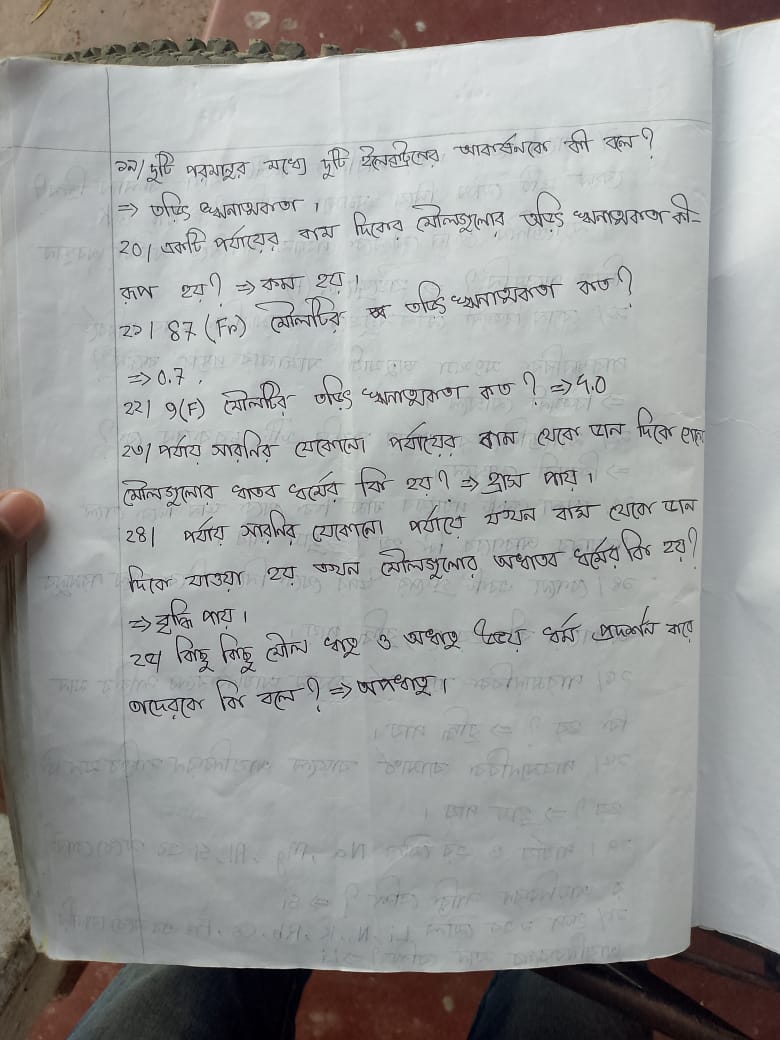 ১৯/ দুটি পরমানুর মধ্যে দুটি ইলেকট্রনের আকর্ষনকে কী বলে?
=> তড়িৎ ঋনাত্মকতা ।
20/ একটি পর্যায়ের বাম দিকের মৌলগুলোর তড়িৎ ঋনাত্মকতা কী-
রূপ হয়? => কম হয় ।
2১/ 87 (Fr) মৌলটির তড়িৎ ঋনাত্মকতা কত?
=> 0.7 .
22/ 9(F) মৌলটির তড়িৎ ঋনাত্মকতা কত? => 4.0
2৩/ পর্যায় সারনির যেকোনো পর্যায়ের বাম থেকে ডান দিকে গেলে
মৌলগুলোর ধাতব ধর্মের কি হয়? => হ্রাস পায় ।
2৪/ পর্যায় সারনির যেকোনো পর্যায়ে যখন বাম থেকে ডান
দিকে যাওয়া হয় তখন মৌলগুলোর অধাতব ধর্মের কি হয়?
=> বৃদ্ধি পায় ।
2৫/ কিছু কিছু মৌল ধাতু ও অধাতু উভয় ধর্ম প্রদর্শন করে
তাদেরকে কি বলে? => অপধাতু ।